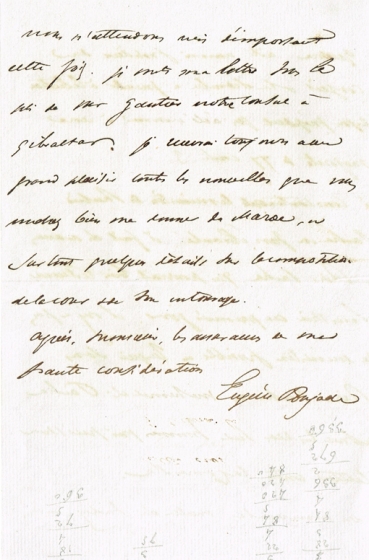 nous n'attendons rien d'important
cette fois. je mets ma lettre sous le
pli de Mr Gautier notre consul à
Gibraltar. je recevrai toujours avec
grand plaisir toutes les nouvelles que vous
voudrez bien me donner du Maroc, et
surtout quelques détails sur la composition
de la cour et de son entourage.
agréez, monsieur, les assurances de ma
haute considération
Eugène